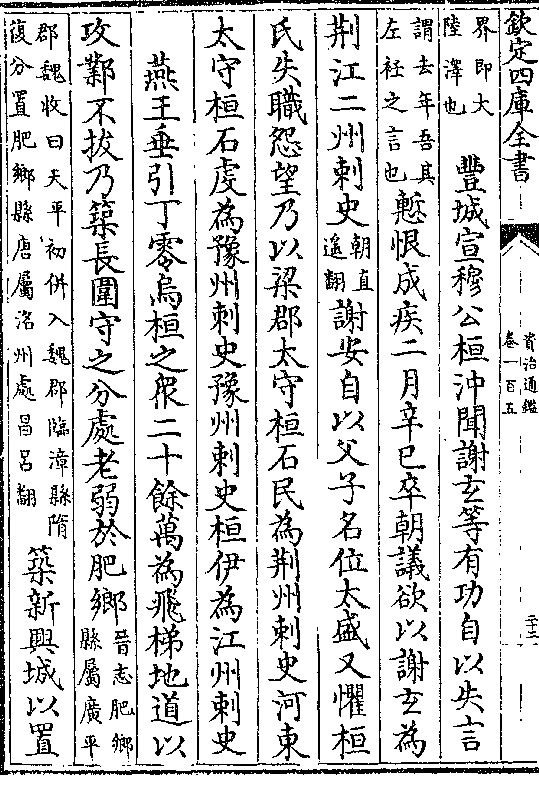 欽定四庫全書
資治通鑑
卷一百五
三十二
界即大
陸澤也
豐城宣穆公桓沖聞謝玄等有功自以失言
謂去年吾其
左衽之言也
慙恨成疾二月辛巳卒朝議欲以謝玄為
荆江二州刺史
朝直
遥翻
謝安自以父子名位太盛又懼桓
氏失職怨望乃以梁郡太守桓石民為荆州刺史河東
太守桓石虔為豫州刺史豫州刺史桓伊為江州刺史
燕王垂引丁零烏桓之衆二十餘萬為飛梯地道以
攻鄴不拔乃築長圍守之分處老弱於肥鄉
晉志肥鄉
縣屬廣平
郡魏收曰天平初併入魏郡臨漳縣隋
復分置肥鄉縣唐屬洺州處昌呂翻
築新興城以置